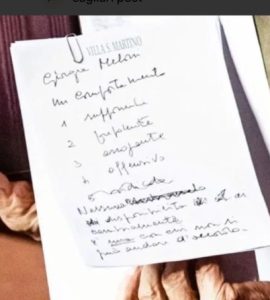 VILLA S. MARTINO
Giorgia Meloni
un comportamento
1 supponente
2 prepotente
3 arrogante
4 offensivo
5
Nessuna
disponibilità ai
cambiamenti
è una con cui non si
può andare d'accordo.